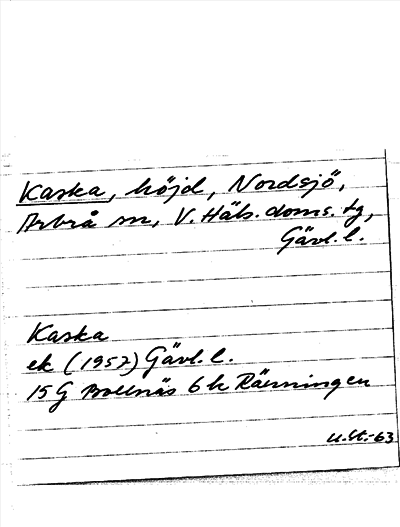 Kaska, höjd, Nordsjö,
Arbrå sn, V. Häls. doms. tg,
Gävl. l.
Kaska
ek (1957) Gävl. l.
15 G Bollnäs 6 hRänningen
U.St.-63